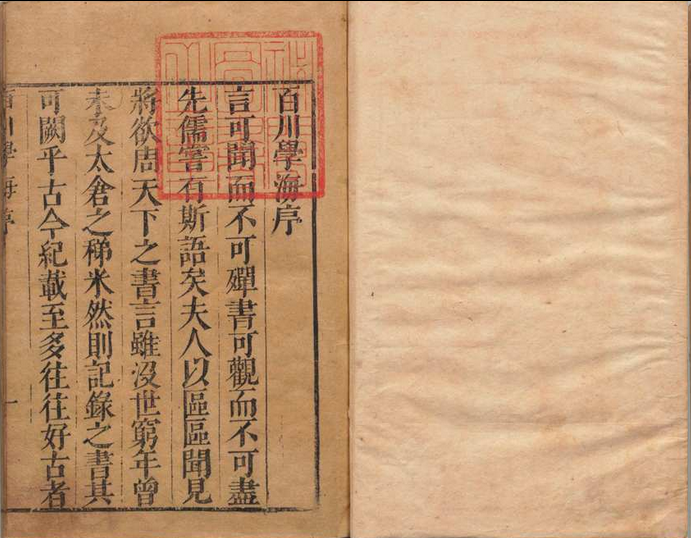 百川學海序
言可聞而不可殫書可觀而不可盡
先儒嘗有斯語矣夫人以區區聞見
將欲周天下之書言雖沒世窮年曾
未及太倉之稊米然則記錄之書其
可闕乎古今紀載至多往往好古者
百川學海序
一